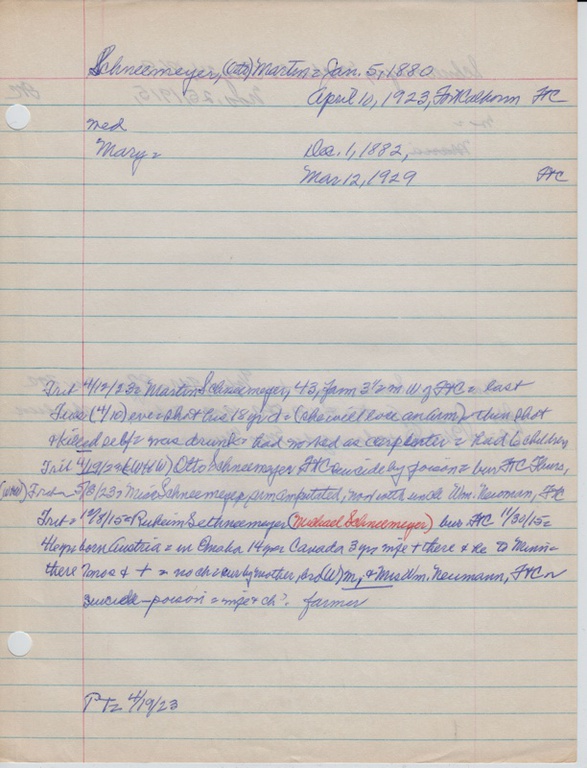 Schneemeyer, (Otto) Martin = Jan. 5, 1880
April 10, 1923, Ft Calhoun FtC
med
Mary = Dec. 1, 1882,
Mar 12, 1929 FtC
Trib 4/12/23 = Martin Schneemeyer, 43, farm 3½ m W of FtC = last
Tues (4/10) eve shot his 18 yr d = (she will lose an arm) = then shot
& killed self = was drunk = had worked as carpenter = had 6 children
Trib 4/19/23 = Otto Schneemeyer FtC suicide by poison = bur FtC Thurs,
Trib = 5/3/23 = Miss Schneemeyer, arm amputated, now with uncle Wm. Neuman, FtC
Trib = 12/ /15 = Schneemeyer (Michael Schneemeyer) bur FtC 11/30/15 =
born Austria = in Omaha 14 yrs Canada 3 yrs wife + there & he to Minn =
there 7 mos & + = no ch = sur by mother, & Mrs Wm. Neumann, FtC
suicide – poison = wife & ch. farmer
PT = 4/19/23